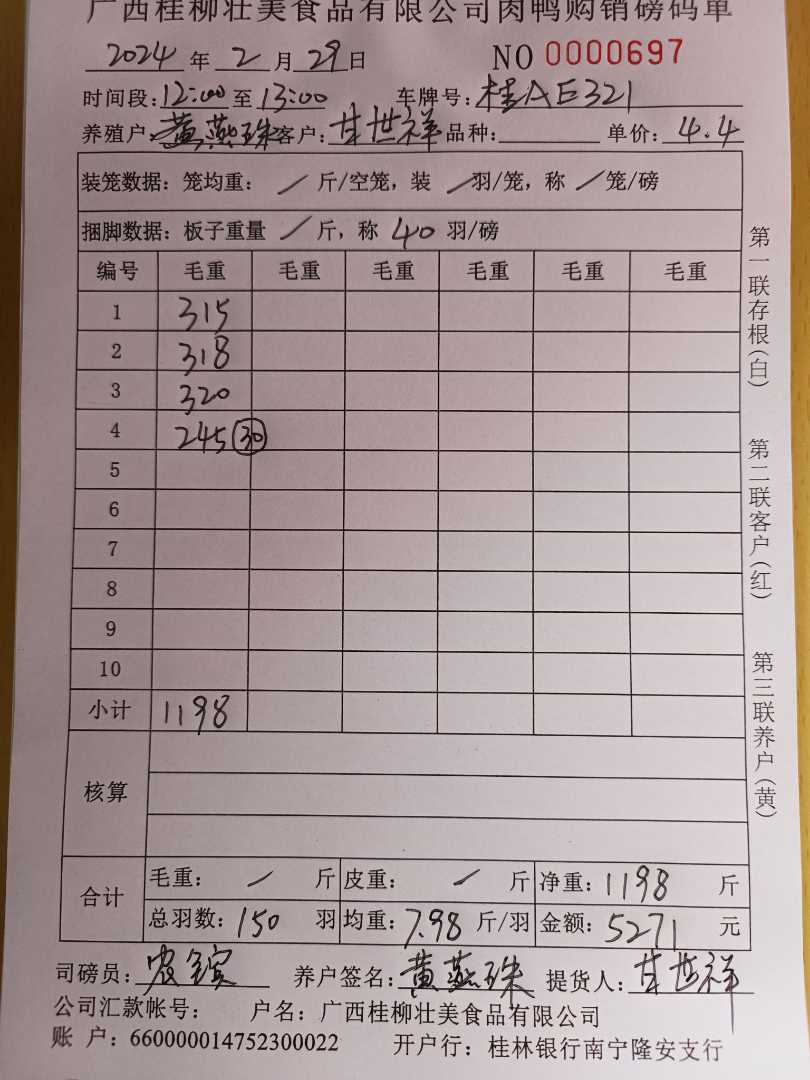 广西桂柳壮美食品有限公司肉鸭购销磅码单
2024 年 2 月 29 日 NO 0000697
时间段:12:00 至 13:00 车牌号:桂AE321
养殖户:黄燕珠 客户:甘世祥 品种: 单价:4.4
装笼数据:笼均重: / 斤/空笼,装 / 羽/笼,称 / 笼/磅
捆脚数据:板子重量 / 斤,称 40 羽/磅
编号 毛重 毛重 毛重 毛重 毛重 毛重
1 315
2 318
3 320
4 245 30
5
6
7
8
9
10
小计 1198
核算
合计 毛重: / 斤 皮重: / 斤 净重:1198 斤
总羽数:150 羽 均重:7.98 斤/羽 金额:5271 元
司磅员: 养户签名:黄燕珠 提货人:甘世祥
公司汇款帐号: 户名:广西桂柳壮美食品有限公司
账 户:660000014752300022 开户行:桂林银行南宁隆安支行
第一联存根(白)
第二联客户(红)
第三联养户(黄)